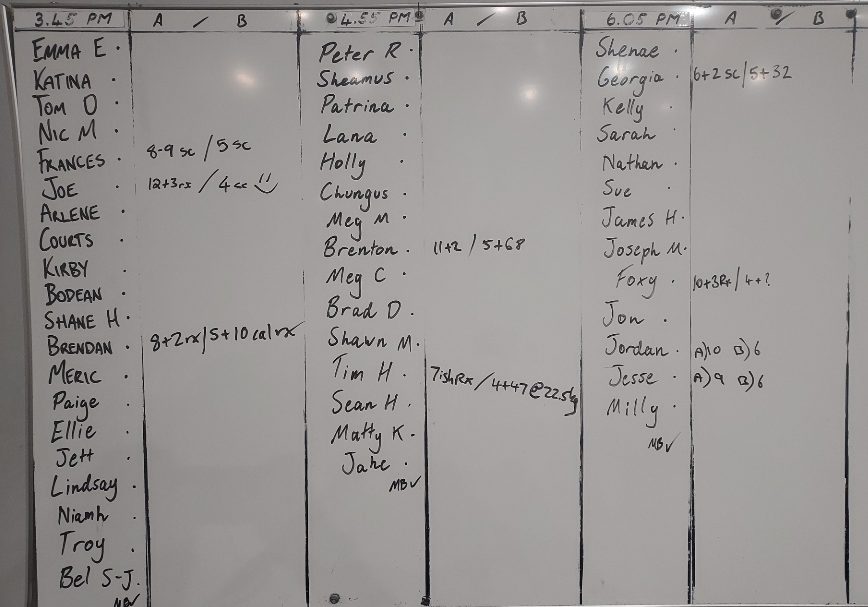 3.45 PM A / B
EMMA E.
KATINA
TOM D
NIC M
FRANCES 8-9 sc / 5 sc
JOE 12+3rx / 4 sc
ARLENE
COURTS
KIRBY
BODEAN
SHANE H.
BRENDAN 8+2rx/5+10 cal rx
MERIC
Paige
Ellie
Jett
Lindsay
Niamh
Troy
Bel S-J.
MB✓
4.55 PM A / B
Peter R.
Sheamus
Patrina
Lana
Holly
Chungus
Meg M
Brenton 11+2 / 5+68
Meg C
Brad D.
Shawn M.
Tim H. 7ishRx / 4+47@22.5kg
Sean H.
Matty K.
Jake
MB✓
6.05 PM A / B
Shenae
Georgia 6+2 sc/5+32
Kelly
Sarah
Nathan
Sue
James H.
Joseph M.
Foxy 10+3Rx/4+?
Jon
Jordan A)10 B)6
Jesse A)9 B)6
Milly
MB✓